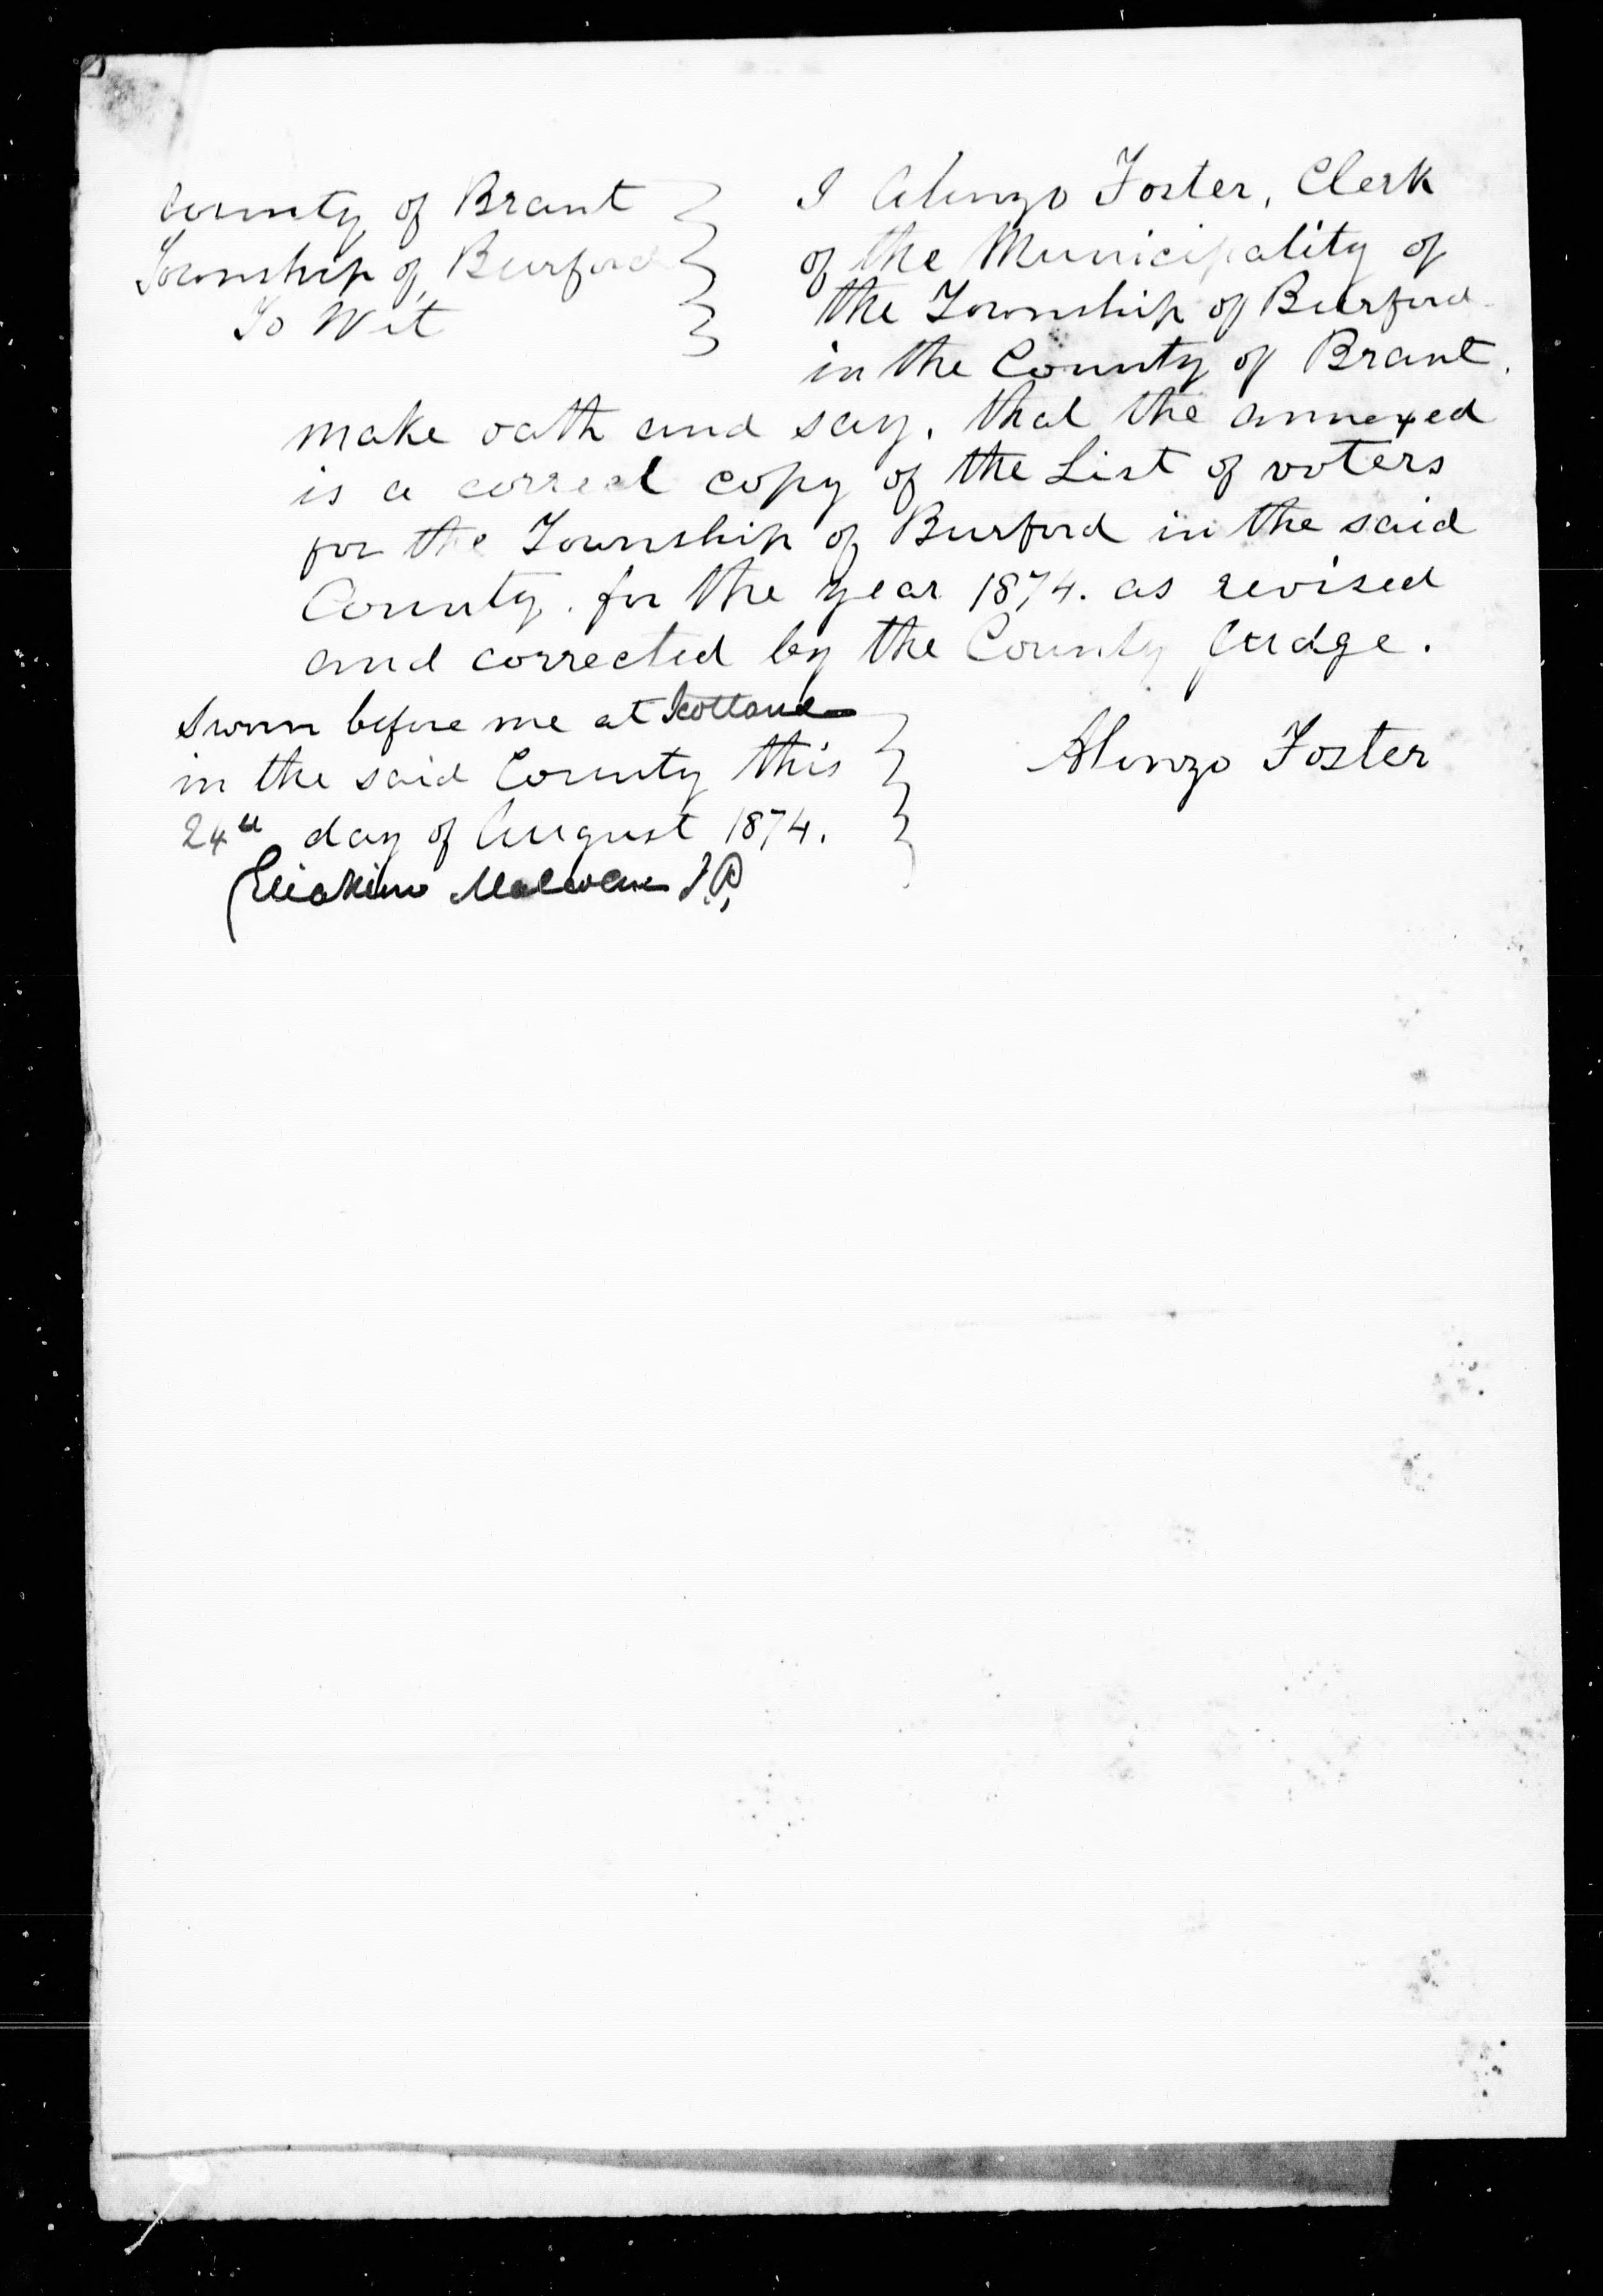 County of Brant
Township of Burford
To Wit
I Alonzo Foster, Clerk
of the Municipality of
the Township of Burford
in the County of Brant.
make oath and say, that the annexed
is a correct copy of the List of voters
for the Township of Burford in the said
County. for the year 1874. as revised
and corrected by the County Judge.
Sworn before me at Scotland
in the said County this
24th day of August 1874.
Eliakim Malcolm J.P.
Alonzo Foster